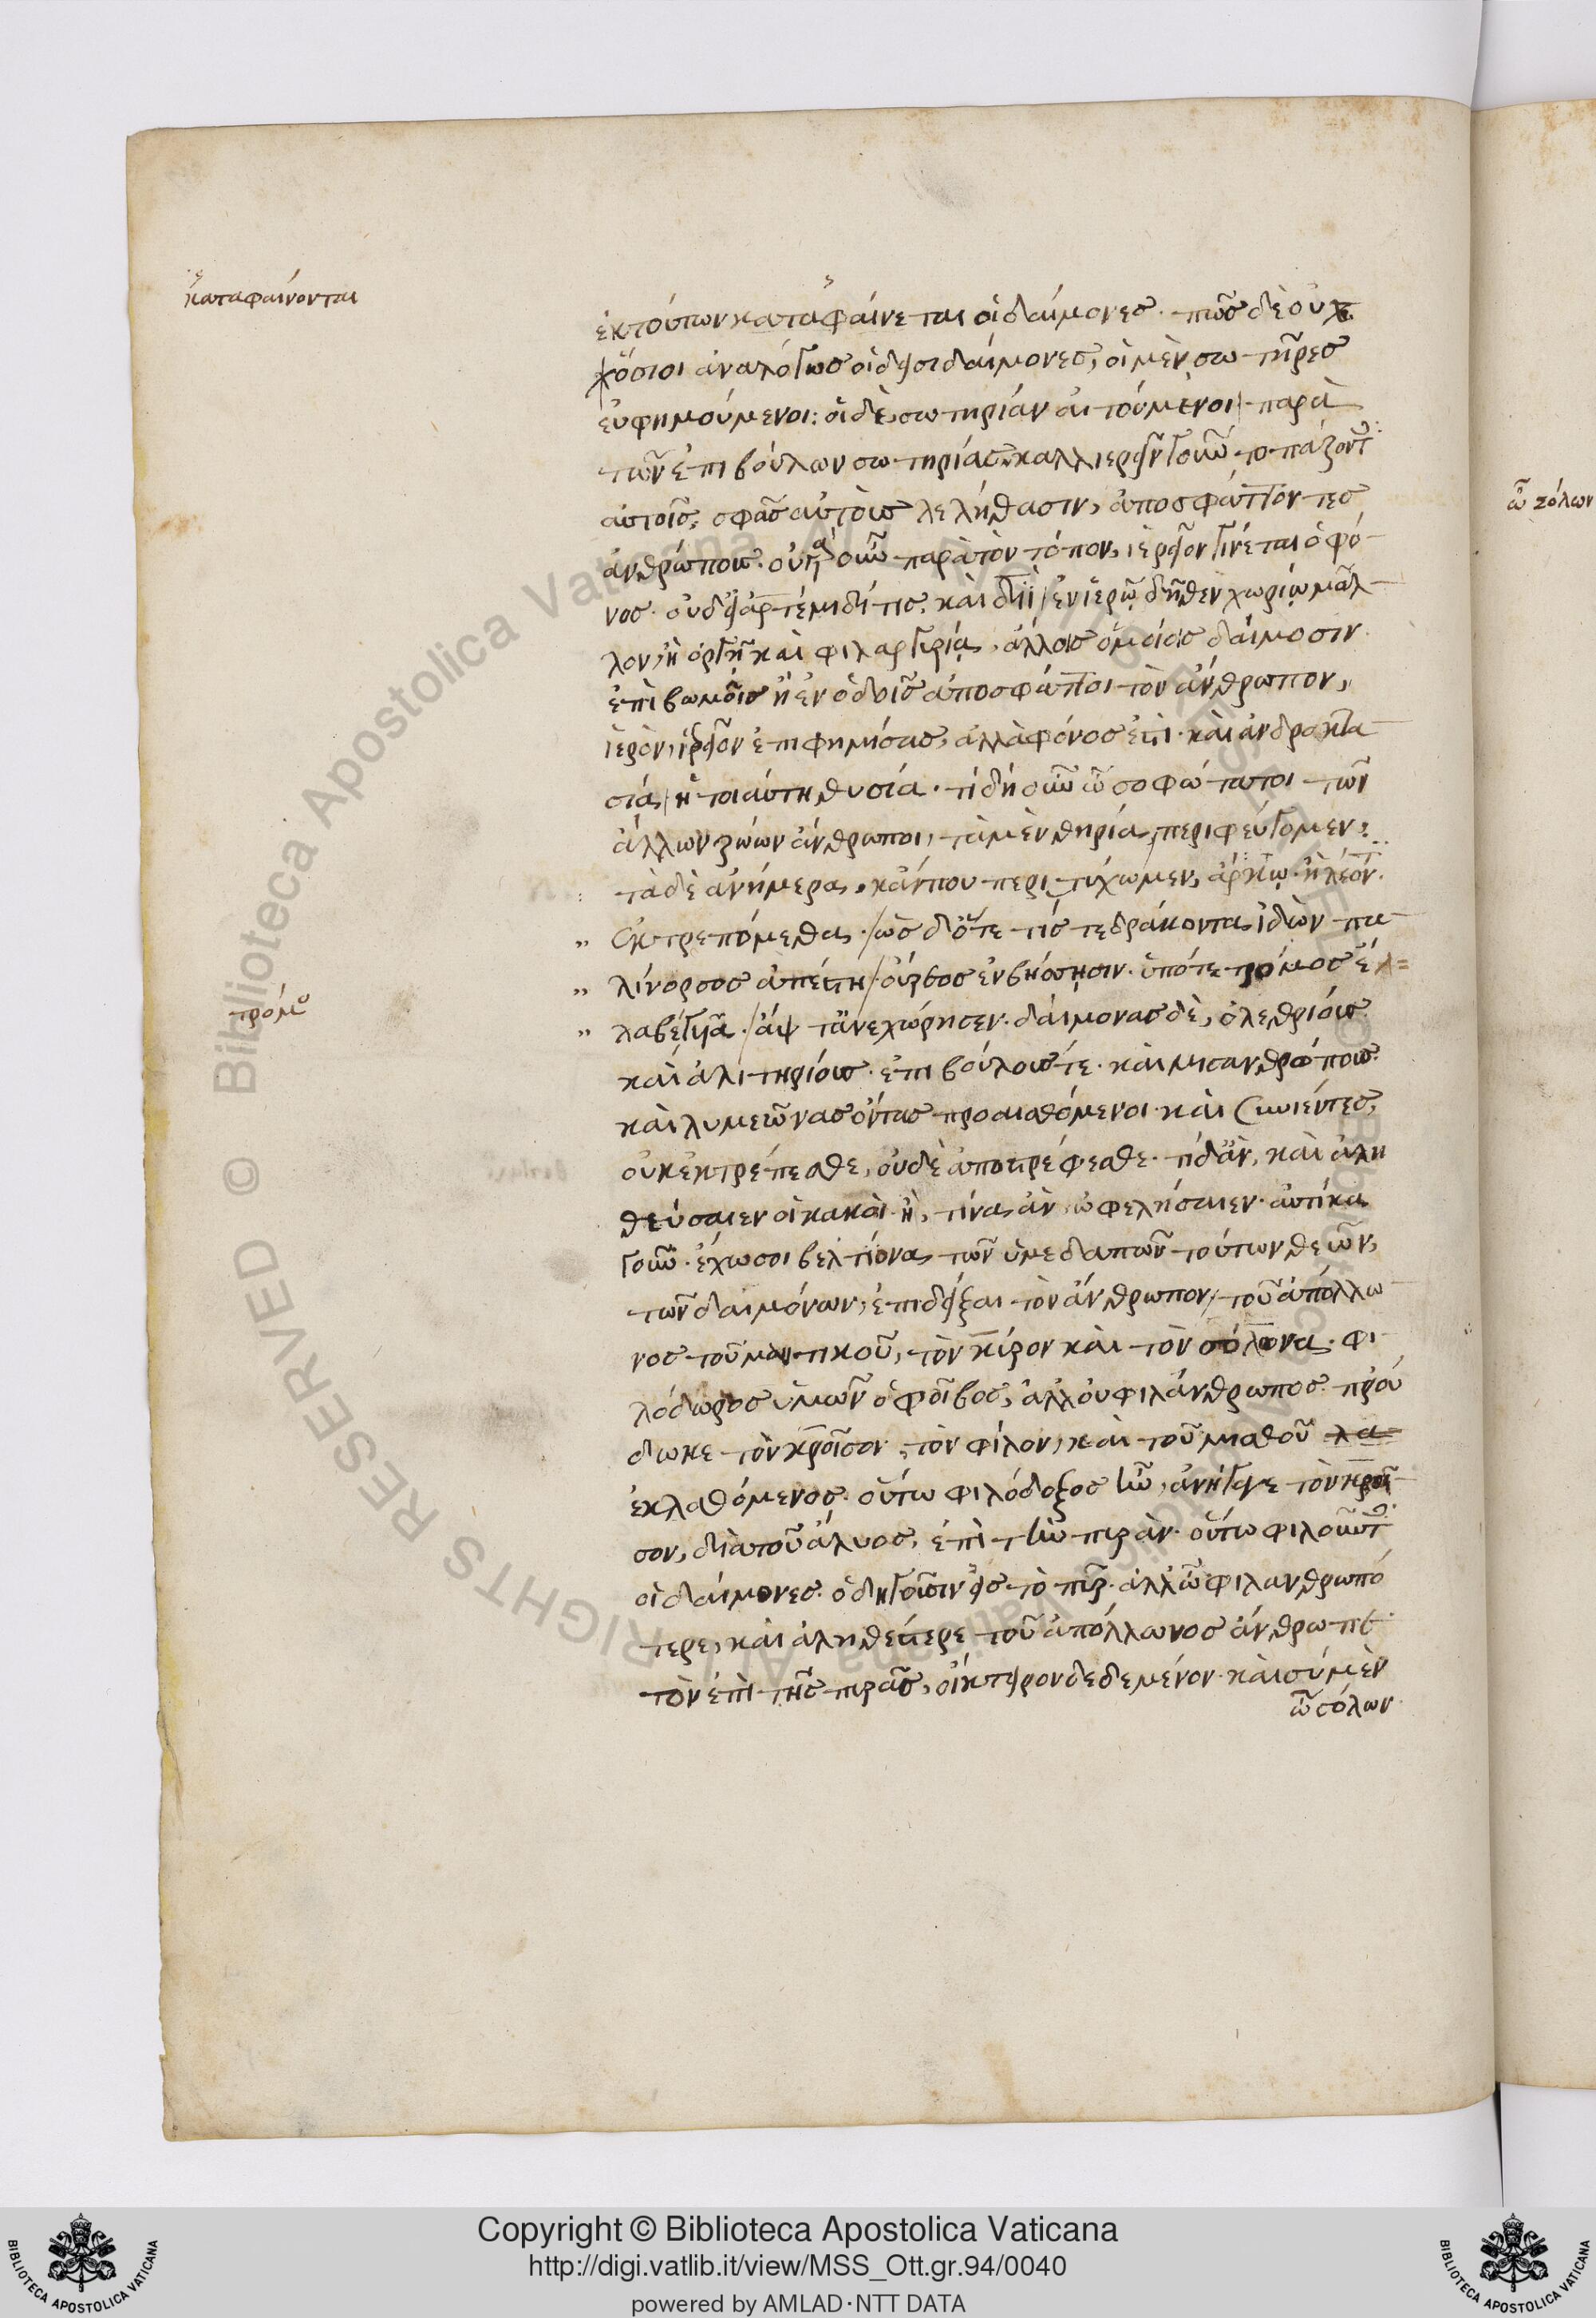 καταφαίνονται
ἐκτούτων καταφαίνεται οἱ δαίμονες· πῶς δὲ οὐχ
ὅσιοι ἀναλόγως οἱ δεισιδαίμονες, οἱ μὲν σωτῆρες
εὐφημούμενοι: οἱ δὲ σωτηρίαν αἰτούμενοι παρὰ
τῶν ἐπιβούλων σωτηρίας, καλλιερεῖν γοῦν τοπάζοντ
αὐτοῖς, σφᾶς αὐτοὺς λελήθασιν, ἀποσφάττοντες
ἀνθρώπους· οὐ γὰρ οὖν παρὰ τὸν τόπον, ἱερεῖον γίνεται ὁ φό
νος· οὐδ εἰ ἀρτέμιδί τις καὶ διῒ ἐν ἱερῷ δῆθεν χωρίῳ μᾶλ
λον, ἢ ὀργῇ καὶ φιλαργυρίᾳ, ἄλλοις ὁμοίοις δαίμοσιν
ἐπὶ βωμοῖς ἢ ἐν ὁδοῖς ἀποσφάττοι τὸν ἄνθρωπον,
ἱερὸν, ἱερεῖον ἐπιφημίσας, ἀλλὰ φόνος ἐστὶ· καὶ ἀνδροκτα
σία, ἡ τοιαύτη θυσία· τί δὴ οὖν ὦ σοφώτατοι τῶν
ἄλλων ζώων ἄνθρωποι, τὰ μὲν θηρία, περιφεύγομεν,
τὰ δὲ ἀνήμερα, κἄν που περιτύχωμεν, ἄρκτῳ ἢ λέοντ
„ ἐκτρεπόμεθα· ὡς δ ὅτε τίς τε δράκοντα ἰδὼν πα
„ λίνορσος ἀπέστη οὔρεος ἐν βήσσῃσιν· ὑπό τε τρόμος ἔλ
τρόμου
„ λαβε γυῖα· ἄψ τ ἀνεχώρησεν· δαίμονας δὲ, ὀλεθρίους
καὶ ἀλιτηρίους· ἐπιβούλους τε· καὶ μισανθρώπους
καὶ λυμεῶνας ὄντας προαισθόμενοι καὶ συνιέντες,
οὐκ ἐκτρέπεσθε, οὐδὲ ἀποστρέφεσθε· τί δ ἂν, καὶ ἀλη
θεύσαιεν οἱ κακοὶ· ἢ, τίνα ἂν ὠφελήσαιεν· αὐτίκα
γοῦν· ἔχω σοι βελτίονα, τῶν ὑμεδαπῶν τούτων θεῶν,
τῶν δαιμόνων, ἐπιδεῖξαι τὸν ἄνθρωπον, τοῦ ἀπόλλω
νος τοῦ μαντικοῦ, τὸν κύρον καὶ τὸν σόλωνα· φι
λόδωρος ὑμῶν ὁ φοῖβος, ἀλλ οὐ φιλάνθρωπος· πρού
δωκε τὸν κροῖσον, τὸν φίλον, καὶ τοῦ μισθοῦ λα
ἐκλαθόμενος· οὕτω φιλόδοξος ἦν, ἀνήγαγε τὸν κροῖ
σον, διὰ τοῦ ἅλυος, ἐπὶ τὴν πυράν· οὕτω φιλοῦντ
οἱ δαίμονες· ὁδηγοῦσιν εἰς τὸ πῦρ· ἀλλ ὦ φιλανθρωπό
τερε, καὶ ἀληθέστερε τοῦ ἀπόλλωνος ἄνθρωπε
τὸν ἐπὶ τῆς πυρᾶς, οἴκτειρον δεδεμένον· καὶ σὺ μὲν
ὦ σόλων
ὦ σόλων
Copyright © Biblioteca Apostolica Vaticana
http://digi.vatlib.it/view/MSS_Ott.gr.94/0040
powered by AMLAD·NTT DATA
BIBLIOTECA APOSTOLICA VATICANA
BIBLIOTECA APOSTOLICA VATICANA